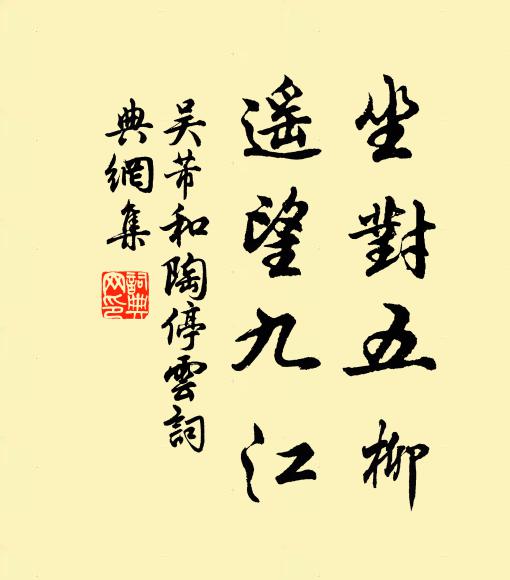 坐對五柳
遥望九江
吴芾和陶停雲詞
典網集
詞典網印